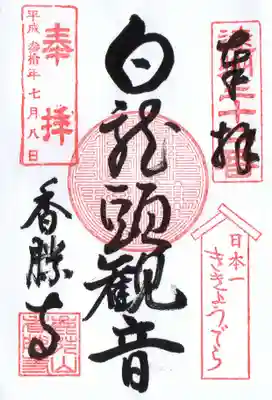 奉拝
日本一
ききょうでら
白龍頭観音
奉拝
平成参拾年七月八日
香勝寺